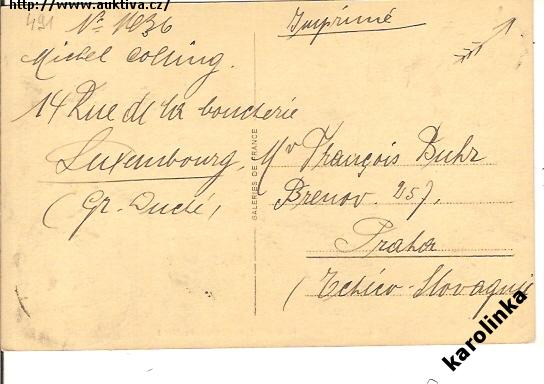 http://www.auktiva.cz/
491
Nº 1036
Michel Colling.
14 Rue de la boucherie
Luxembourg,
(Gr. Duché)
GALERIES DE FRANCE
Imprimé
Mr François Buhr
Brenov. 257.
Praha
(Tchéco-Slovaquie
karolinka